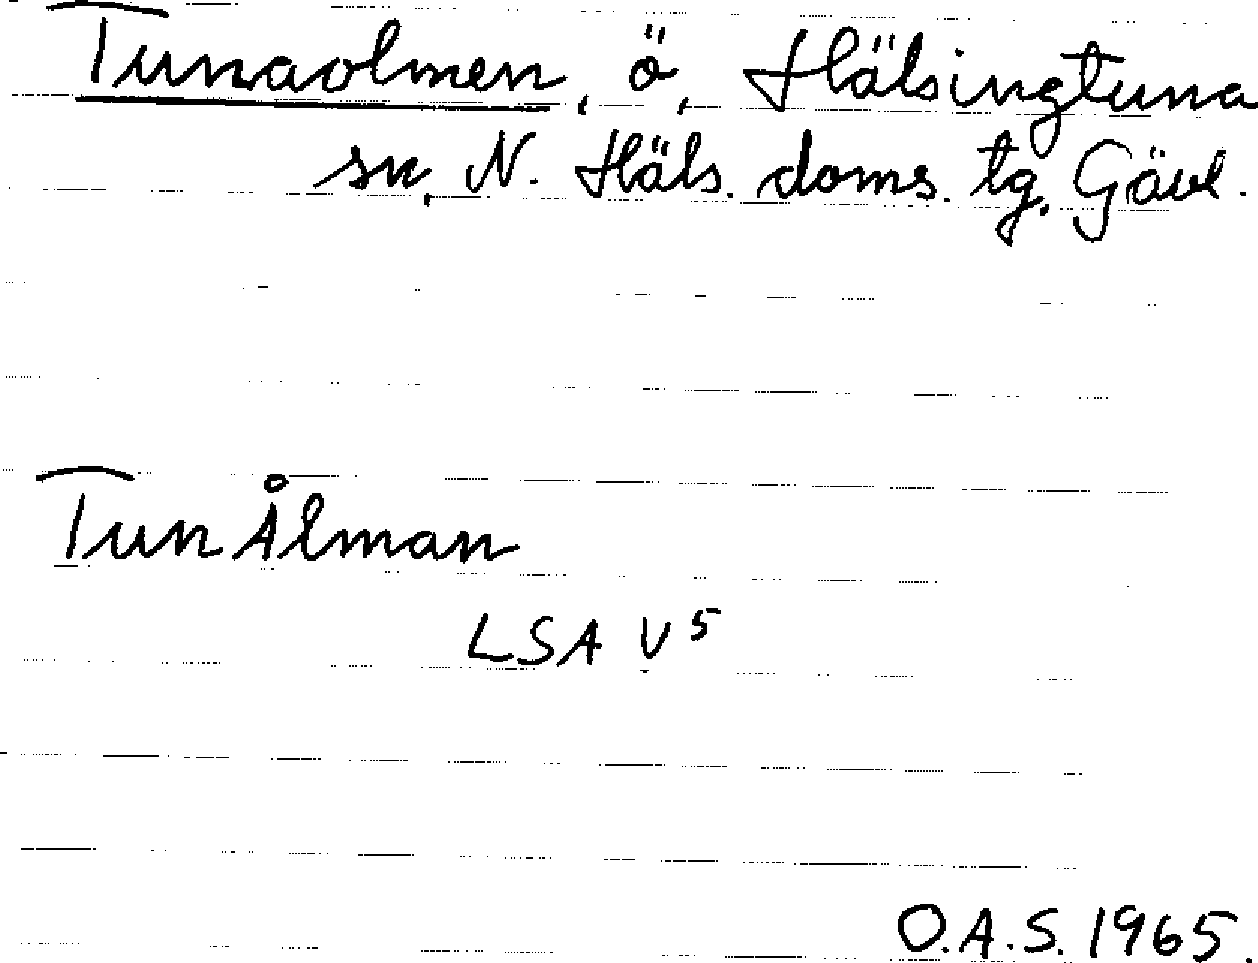 Tunaolmen, ö, Hälsingtuna
sn, N. Häls. doms. tg, Gävl.
Tun Ålman
LSA V 5
O.A.S. 1965.